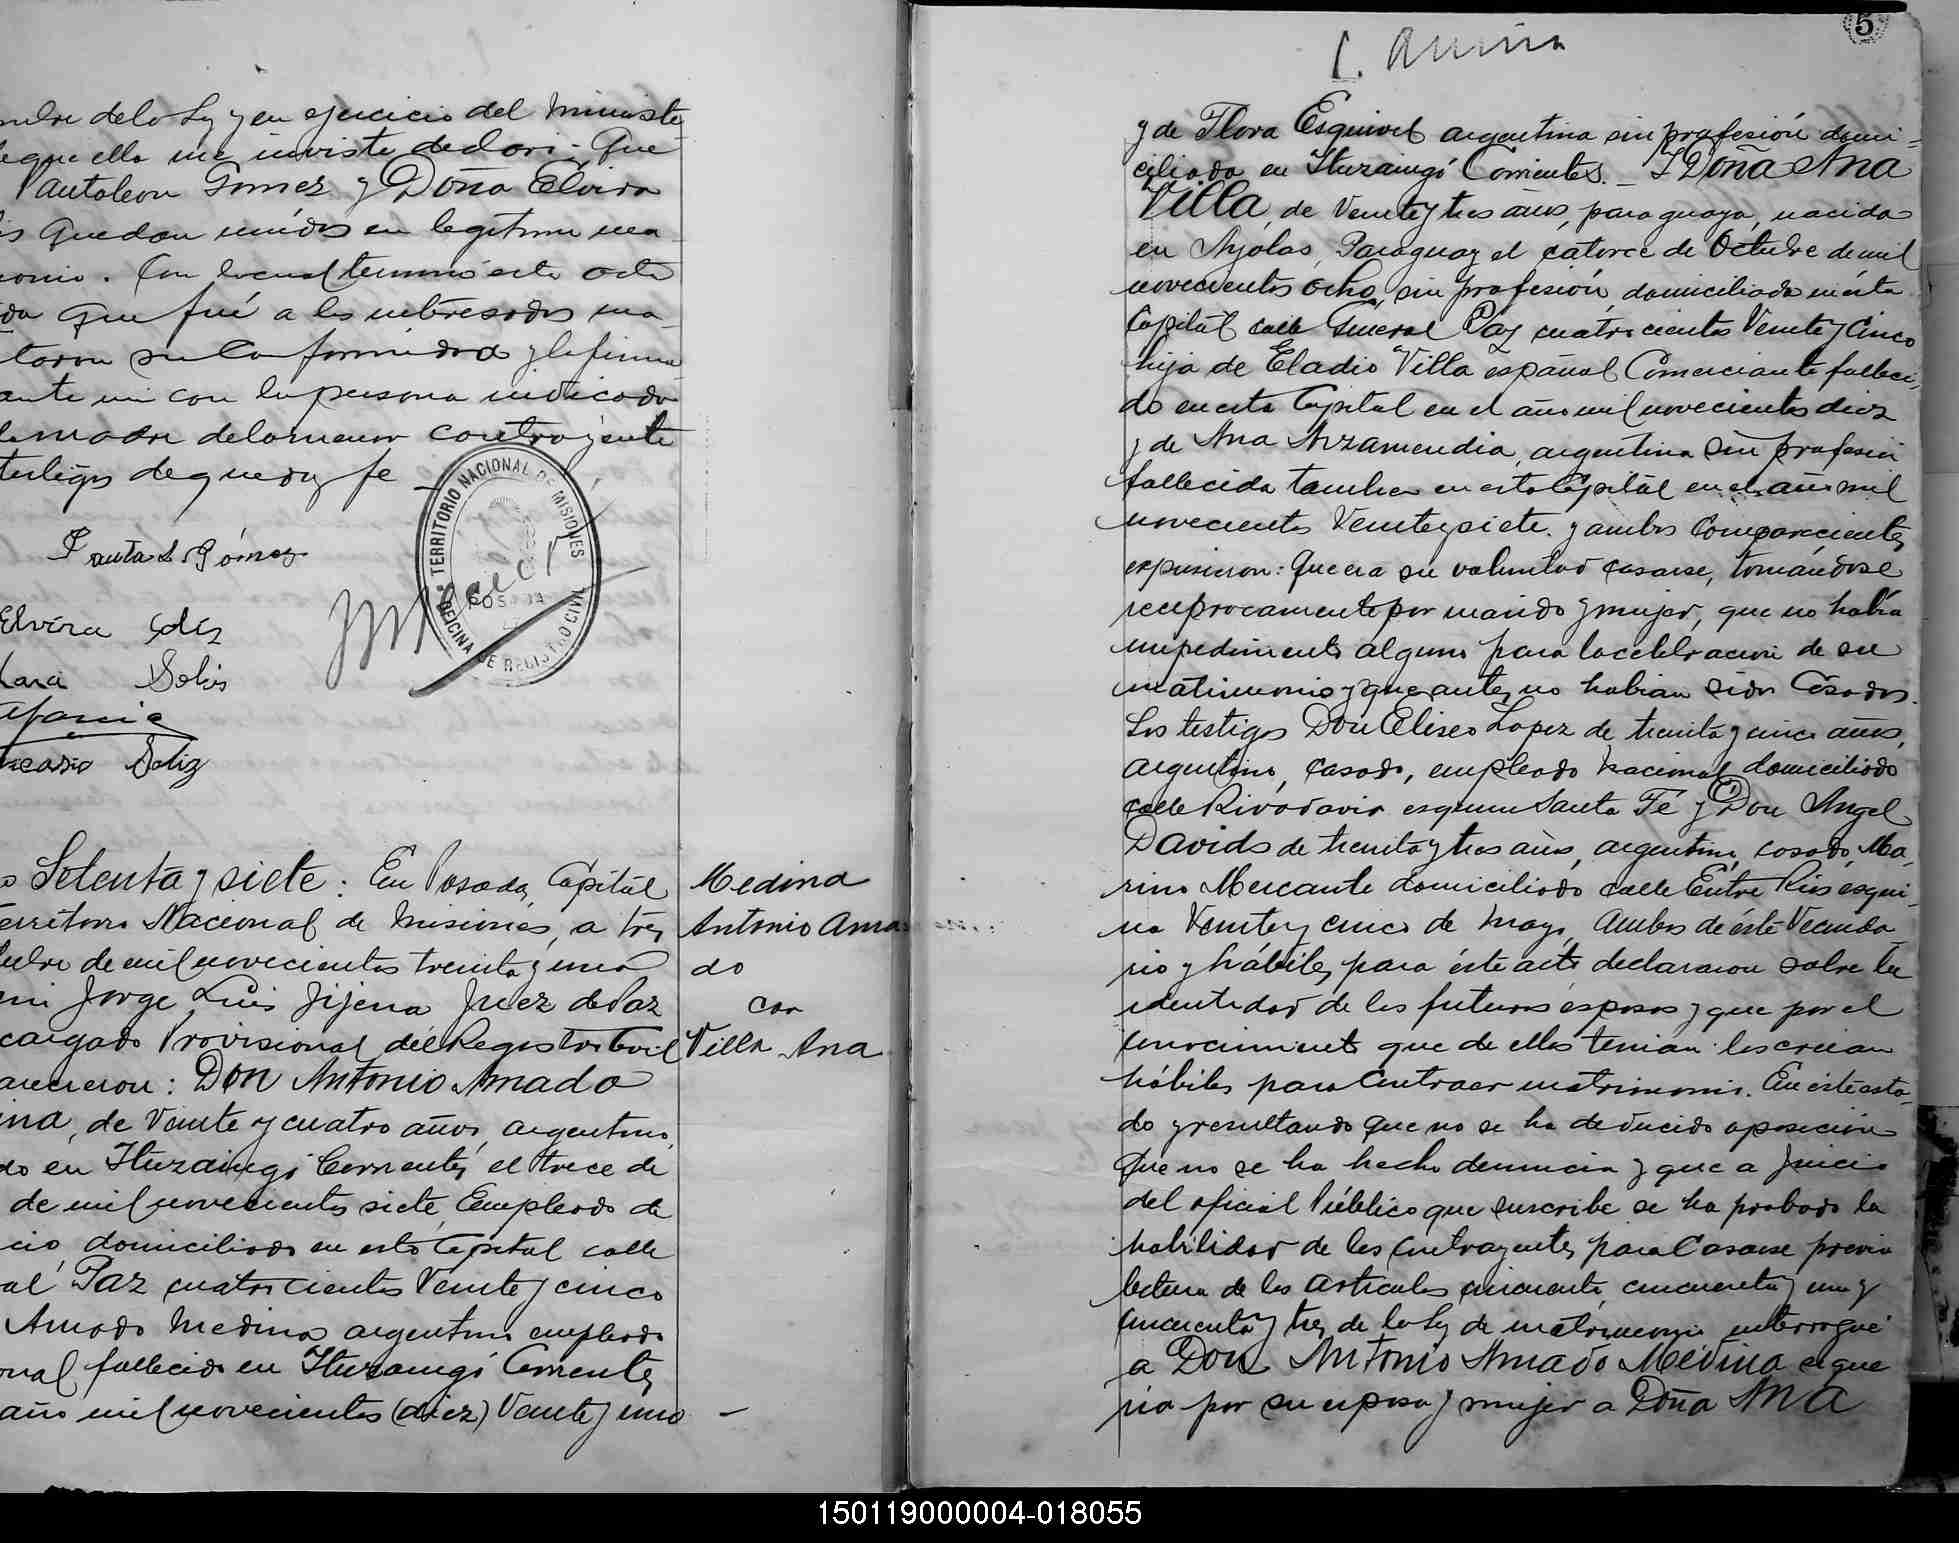 de la Ley y en ejercicio del Ministe
que ella me inviste declaro: Que
Pantaleon Gomez y Doña Elvira
quedan unidos en legitimo ma
monio. Con lo cual terminó esta acta
da que fué a los interesados ma
su conformidad y la firma
ante mi con la persona indicada
la madre de la menor contrayente
testigos de que doy fe
Elvira
Solis
Soliz
TERRITORIO NACIONAL DE MISIONES
POSADAS
OFICINA DE REGISTRO CIVIL
Setenta y siete: En Posadas, Capital
Territorio Nacional de Misiones, a tres
de mil novecientos treinta y uno
mi Jorge Luis Jijena Juez de Paz
cargado Provisional del Registro Civil
arecieron: Don Antonio Amado
ina, de Veinte y cuatro años, argentino,
do en Ituzaingó Corrientes el trece de
de mil novecientos siete, Empleado de
cio, domiciliado en esta Capital calle
al Paz cuatrocientos Veinte y cinco
Amado Medina argentino empleado
onal fallecido en Ituzaingó Corrientes
año mil novecientos (diez) Veinte y uno
Medina
Antonio Ama
do
con
Villa Ana
5
y de Flora Esquivel argentina sin profesión domi-
ciliada en Ituzaingó Corrientes. _ Y Doña Ana
Villa, de Veinte y tres años, paraguaya, nacida
en Ayolas, Paraguay el catorce de Octubre de mil
novecientos ocho, sin profesión, domiciliada en ésta
Capital calle General Paz cuatrocientos Veinte y Cinco
hija de Eladio Villa español Comerciante falleci-
do en esta Capital en el año mil novecientos diez
y de Ana Arzamendia, argentina sin profesión
fallecida tambien en esta Capital en el año mil
novecientos Veinte y siete. y ambos comparecientes
expusieron: Que era su voluntad casarse, tomándose
reciprocamente por marido y mujer, que no había
impedimento alguno para la celebracion de su
matrimonio y que antes no habian sido Casados.
Los testigos Don Eliseo Lopez de treinta y cinco años,
argentino, casado, empleado Nacional domiciliado
calle Rivadavia esquina Santa Fé y Don Angel
Davids de treinta y tres años, argentino, casado, Ma-
rino Mercante domiciliado calle Entre Rios esqui-
na Veinte y cinco de Mayo, ambos de éste Vecinda-
rio y hábiles para éste acto declararon sobre la
identidad de los futuros esposos y que por el
conocimiento que de ellos tenian los creian
hábiles para Contraer matrimonio. En éste esta-
do y resultando que no se ha deducido oposición
Que no se ha hecho denuncia y que a juicio
del oficial Público que suscribe se ha probado la
habilidad de los Contrayentes para Casarse previa
lectura de los articulos cincuenta, cincuenta y uno y
cincuenta y tres de la Ley de matrimonio interrogué
a Don Antonio Amado Medina si que
ria por su esposa y mujer a Doña Ana
150119000004-018055